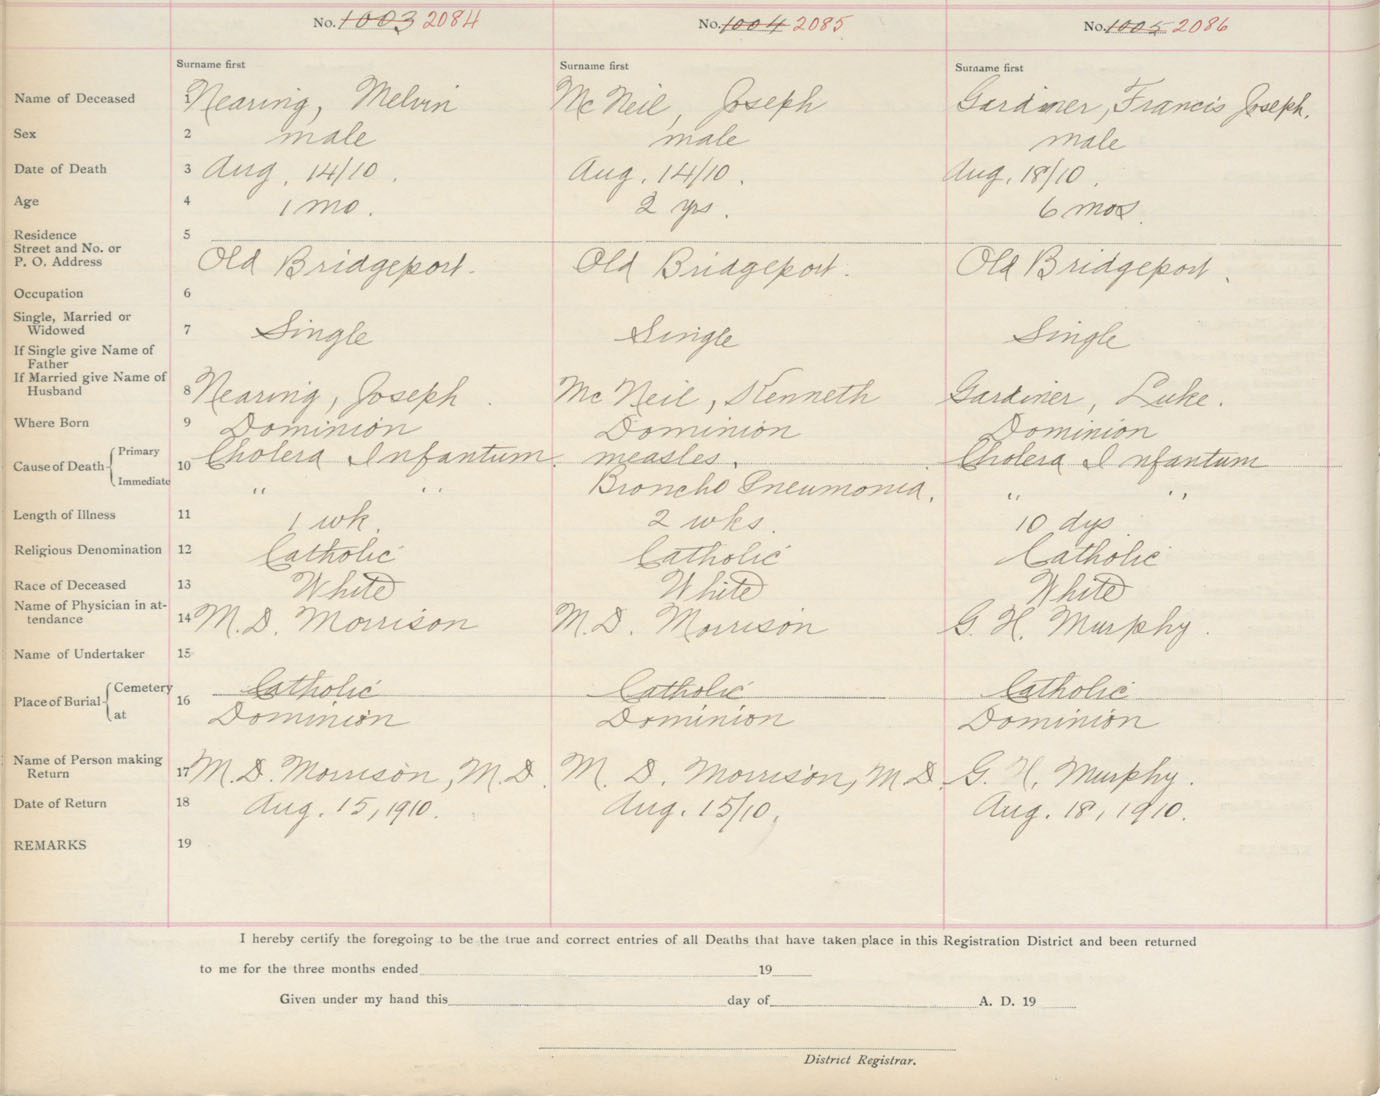 No. 1003 2084 No. 1004 2085 No. 1005 2086
Surname first Surname first Surname first
Name of Deceased 1 Nearing, Melvin Mc Neil, Joseph Gardiner, Francis Joseph.
Sex 2 male male male
Date of Death 3 Aug. 14/10. Aug. 14/10. Aug. 18/10.
Age 4 1 mo. 2 yrs. 6 mos.
Residence 5
Street and No. or
P. O. Address Old Bridgeport. Old Bridgeport. Old Bridgeport.
Occupation 6
Single, Married or
Widowed 7 Single Single Single
If Single give Name of
Father
If Married give Name of
Husband 8 Nearing, Joseph. Mc Neil, Kenneth Gardiner, Luke.
Where Born 9 Dominion Dominion Dominion
Cause of Death Primary 10 Cholera Infantum. measles. Cholera Infantum
Immediate " " Broncho Pneumonia. " "
Length of Illness 11 1 wk. 2 wks. 10 dys
Religious Denomination 12 Catholic Catholic Catholic
Race of Deceased 13 White White White
Name of Physician in at-
tendance 14 M. D. Morrison M. D. Morrison G. H. Murphy.
Name of Undertaker 15
Place of Burial Cemetery 16 Catholic Catholic Catholic
at Dominion Dominion Dominion
Name of Person making
Return 17 M. D. Morrison, M. D. M. D. Morrison, M. D. G. H. Murphy.
Date of Return 18 Aug. 15, 1910. Aug. 15/10. Aug. 18, 1910.
REMARKS 19
I hereby certify the foregoing to be the true and correct entries of all Deaths that have taken place in this Registration District and been returned
to me for the three months ended 19
Given under my hand this day of A. D. 19
District Registrar.